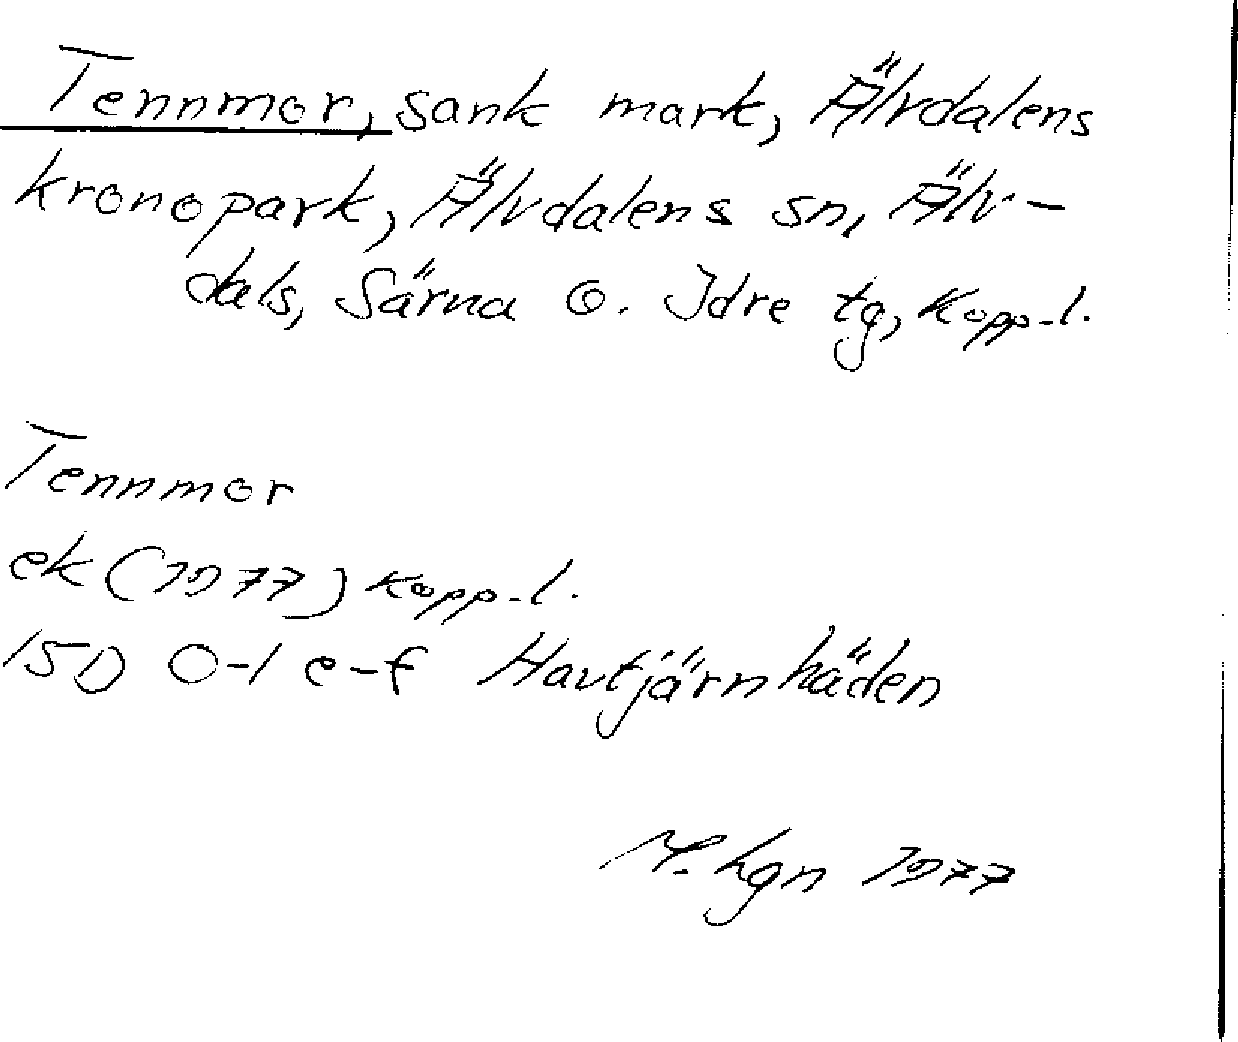 Tennmor, sank mark, Älvdalens
kronopark, Älvdalens sn, Älv-
dals, Särna o. Idre tg, Kopp-l.
Tennmor
ek (1977) Kopp-l.
15D 0-1 e-f Havtjärnhäden
M. hgn 1977